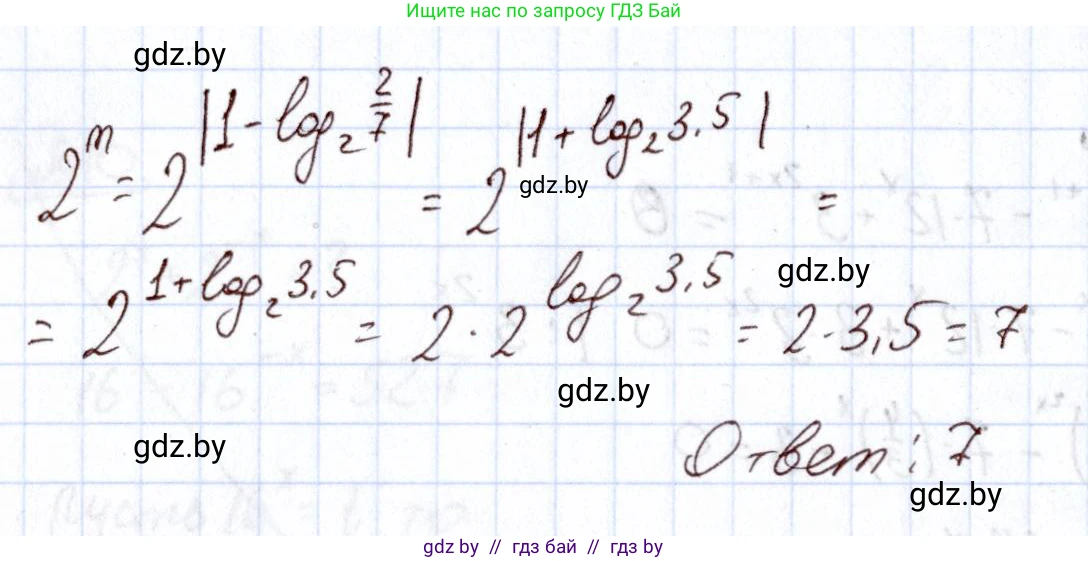 Ищите нас по запросу ГДЗ Бай
gdz.by
2^m = 2^|1 - log_2 2/7| = 2^|1 + log_2 3,5| =
gdz.by
= 2^(1 + log_2 3,5) = 2 · 2^(log_2 3,5) = 2 · 3,5 = 7
gdz.by
gdz.by
gdz.by
Ответ: 7
gdz.by
gdz.by // гдз бай // гдз by